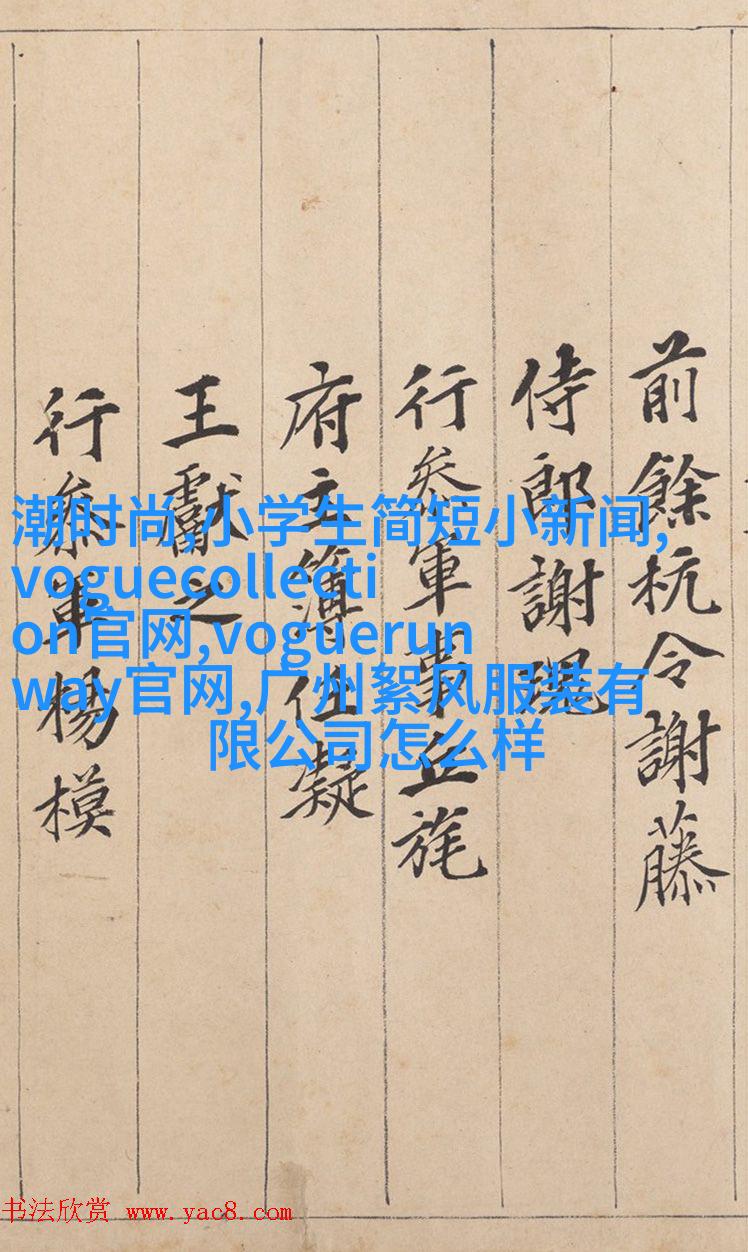 前餘杭令謝藤
侍郎謝瑰
行叅軍事丘旄
府主簿任凝
王獻之
行叅軍楊模
潮时尚,小学生简短小新闻,
voguecollecti
on官网,voguerun
way官网,广州絮风服装有
限公司怎么样
书法欣赏 www.yac8.com